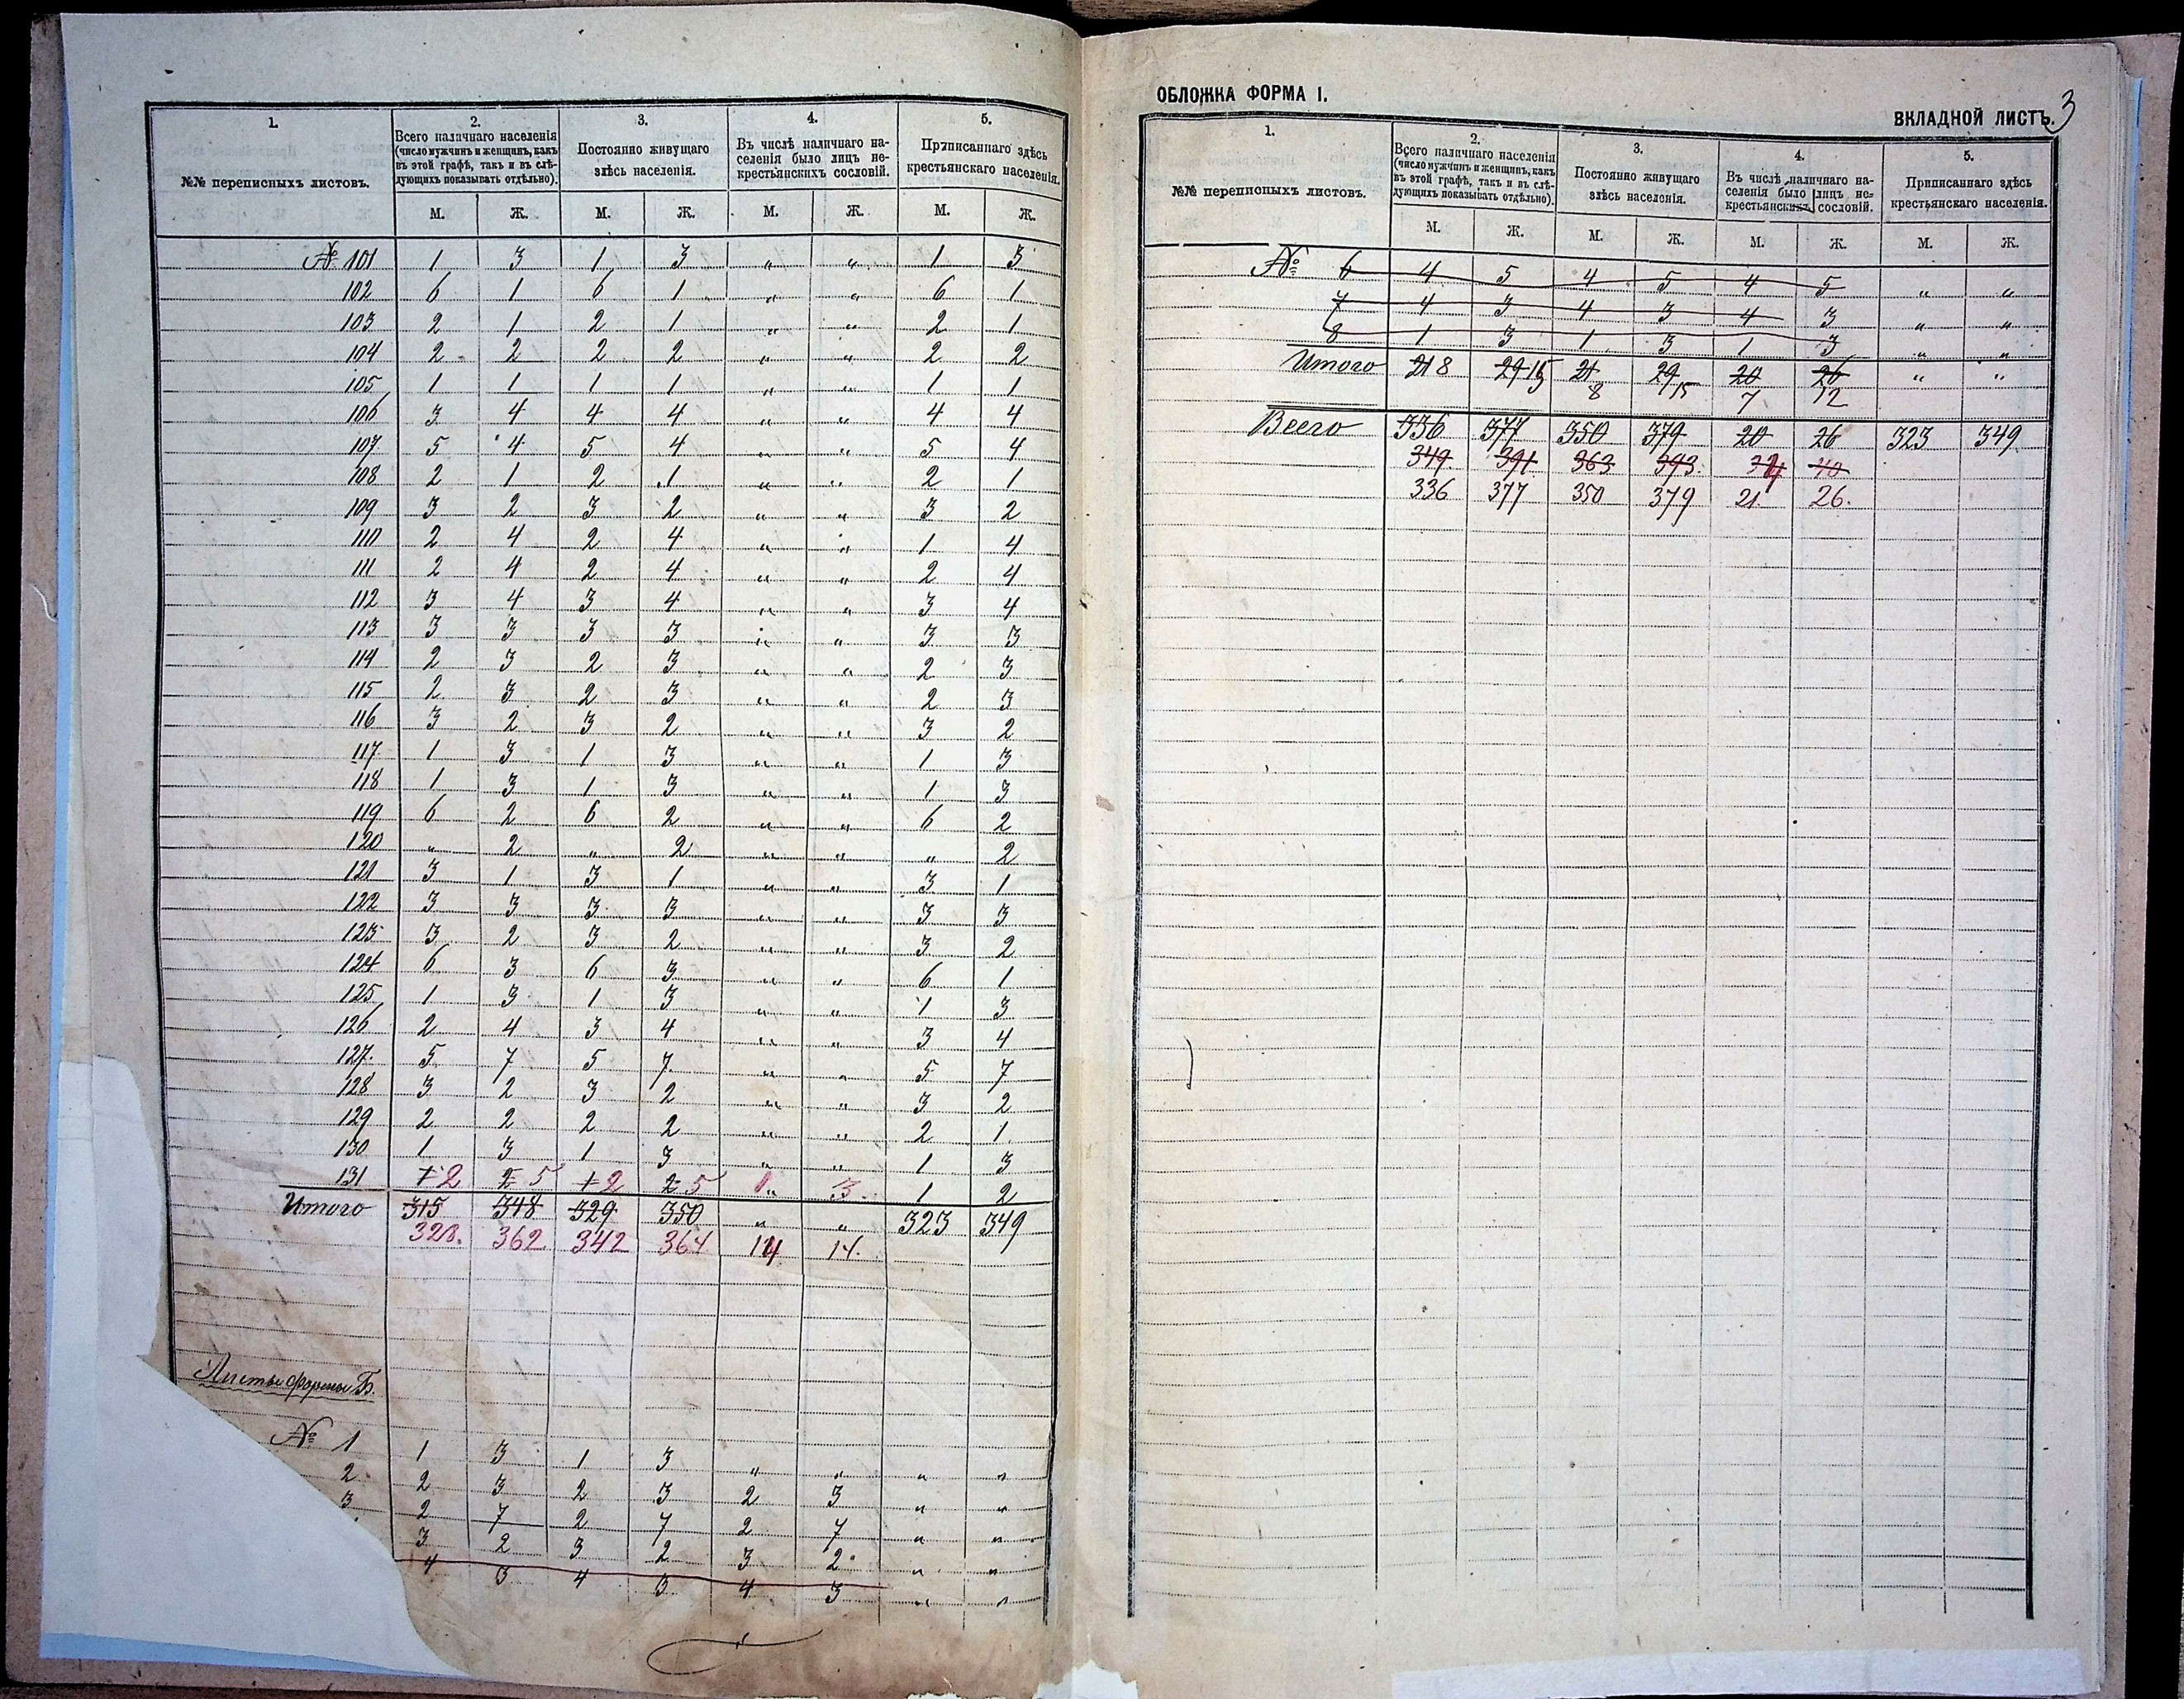 1. 2. 3. 4. 5.
№№ переписныхъ листовъ.
Всего наличнаго населенія
(число мужчинъ и женщинъ, какъ
въ этой графѣ, такъ и въ слѣ-
дующихъ показывать отдѣльно).
Постоянно живущаго
здѣсь населенія.
Въ числѣ наличнаго на-
селенія было лицъ не-
крестьянскихъ сословій.
Приписаннаго здѣсь
крестьянскаго населенія.
М. Ж. М. Ж. М. Ж. М. Ж.
№ 101 1 3 1 3 „ „ 1 3
102 6 1 6 1 „ „ 6 1
103 2 1 2 1 „ „ 2 1
104 2 2 2 2 „ „ 2 2
105 1 1 1 1 „ „ 1 1
106 3 4 4 4 „ „ 4 4
107 5 4 5 4 „ „ 5 4
108 2 1 2 1 „ „ 2 1
109 3 2 3 2 „ „ 3 2
110 2 4 2 4 „ „ 1 4
111 2 4 2 4 „ „ 2 4
112 3 4 3 4 „ „ 3 4
113 3 3 3 3 „ „ 3 3
114 2 3 2 3 „ „ 2 3
115 2 3 2 3 „ „ 2 3
116 3 2 3 2 „ „ 3 2
117 1 3 1 3 „ „ 1 3
118 1 3 1 3 „ „ 1 3
119 6 2 6 2 „ „ 6 2
120 „ 2 „ 2 „ „ „ 2
121 3 1 3 1 „ „ 3 1
122 3 3 3 3 „ „ 3 3
123 3 2 3 2 „ „ 3 2
124 6 3 6 3 „ „ 6 1
125 1 3 1 3 „ „ 1 3
126 2 4 3 4 „ „ 3 4
127 5 7 5 7 „ „ 5 7
128 3 2 3 2 „ „ 3 2
129 2 2 2 2 „ „ 2 1
130 1 3 1 3 „ „ 1 3
131 1 2 2 5 1 2 2 5 1 „ 3 1 2
Итого 315 348 329 350 „ „ 323 349
328. 362 342 364 14 14.
Листы формы Б.
№ 1 1 3 1 3 „ „ „ „
2 2 3 2 3 2 3 „ „
3 2 7 2 7 2 7 „ „
3 2 3 2 3 2 „ „
4 3 4 3 4 3 „ „
ОБЛОЖКА ФОРМА I.
ВКЛАДНОЙ ЛИСТЪ. 3
1. 2. 3. 4. 5.
№№ переписныхъ листовъ.
Всего наличнаго населенія
(число мужчинъ и женщинъ, какъ
въ этой графѣ, такъ и въ слѣ-
дующихъ показывать отдѣльно).
Постоянно живущаго
здѣсь населенія.
Въ числѣ наличнаго на-
селенія было лицъ не-
крестьянскихъ сословій.
Приписаннаго здѣсь
крестьянскаго населенія.
М. Ж. М. Ж. М. Ж. М. Ж.
№ 6 4 5 4 5 4 5 „ „
7 4 3 4 3 4 3 „ „
8 1 3 1 3 1 3 „ „
Итого 21 8 29 15 21 29 20 26 „ „
8 15 7 12
Всего 336 377 350 379 20 26 323 349
349 391 363 393 40
336 377 350 379 21 26.